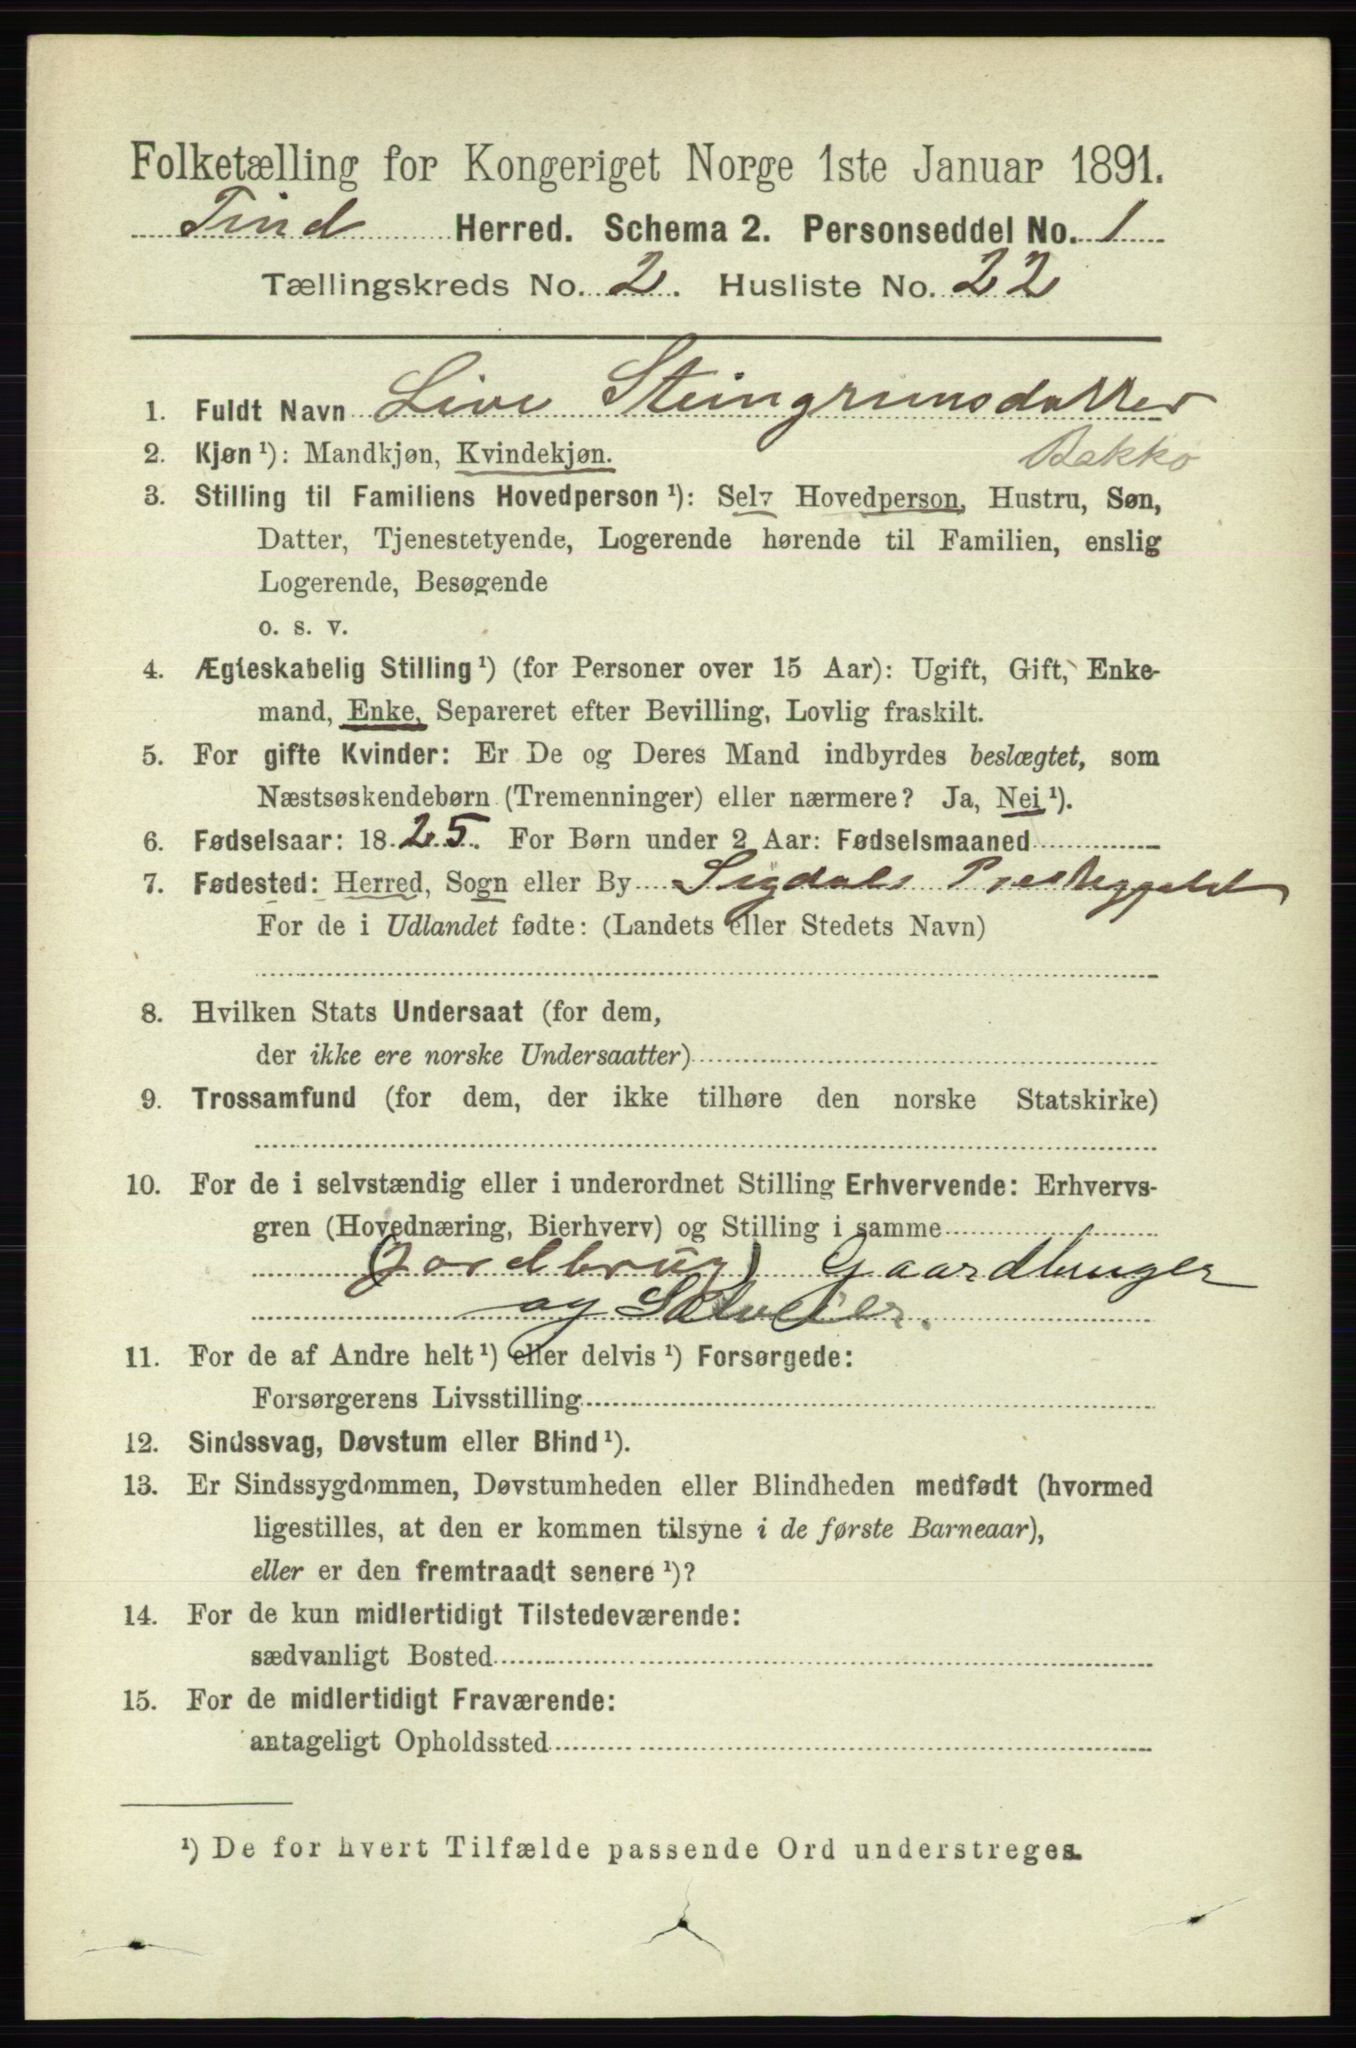 Folketælling for Kongeriget Norge 1ste Januar 1891.
Tind Herred. Schema 2. Personseddel No. 1
Tællingskreds No. 2. Husliste No. 22
1. Fuldt Navn Live Steingrimsdatter
2. Kjøn ¹): Mandkjøn, Kvindekjøn. Bakko
3. Stilling til Familiens Hovedperson ¹): Selv Hovedperson, Hustru, Søn,
Datter, Tjenestetyende, Logerende hørende til Familien, enslig
Logerende, Besøgende
o. s. v.
4. Ægteskabelig Stilling ¹) (for Personer over 15 Aar): Ugift, Gift, Enke-
mand, Enke, Separeret efter Bevilling, Lovlig fraskilt.
5. For gifte Kvinder: Er De og Deres Mand indbyrdes beslægtet, som
Næstsøskendebørn (Tremenninger) eller nærmere? Ja, Nei ¹).
6. Fødselsaar: 1825. For Børn under 2 Aar: Fødselsmaaned
7. Fødested: Herred, Sogn eller By Sigdals Prestegjeld
For de i Udlandet fødte: (Landets eller Stedets Navn)
8. Hvilken Stats Undersaat (for dem,
der ikke ere norske Undersaatter)
9. Trossamfund (for dem, der ikke tilhøre den norske Statskirke)
10. For de i selvstændig eller i underordnet Stilling Erhvervende: Erhvervs-
gren (Hovednæring, Bierhverv) og Stilling i samme
(Jordbrug) Gaardbruger
og Selveier.
11. For de af Andre helt ¹) eller delvis ¹) Forsørgede:
Forsørgerens Livsstilling
12. Sindssvag, Døvstum eller Blind ¹).
13. Er Sindssygdommen, Døvstumheden eller Blindheden medfødt (hvormed
ligestilles, at den er kommen tilsyne i de første Barneaar),
eller er den fremtraadt senere ¹)?
14. For de kun midlertidigt Tilstedeværende:
sædvanligt Bosted
15. For de midlertidigt Fraværende:
antageligt Opholdssted
¹) De for hvert Tilfælde passende Ord understreges.